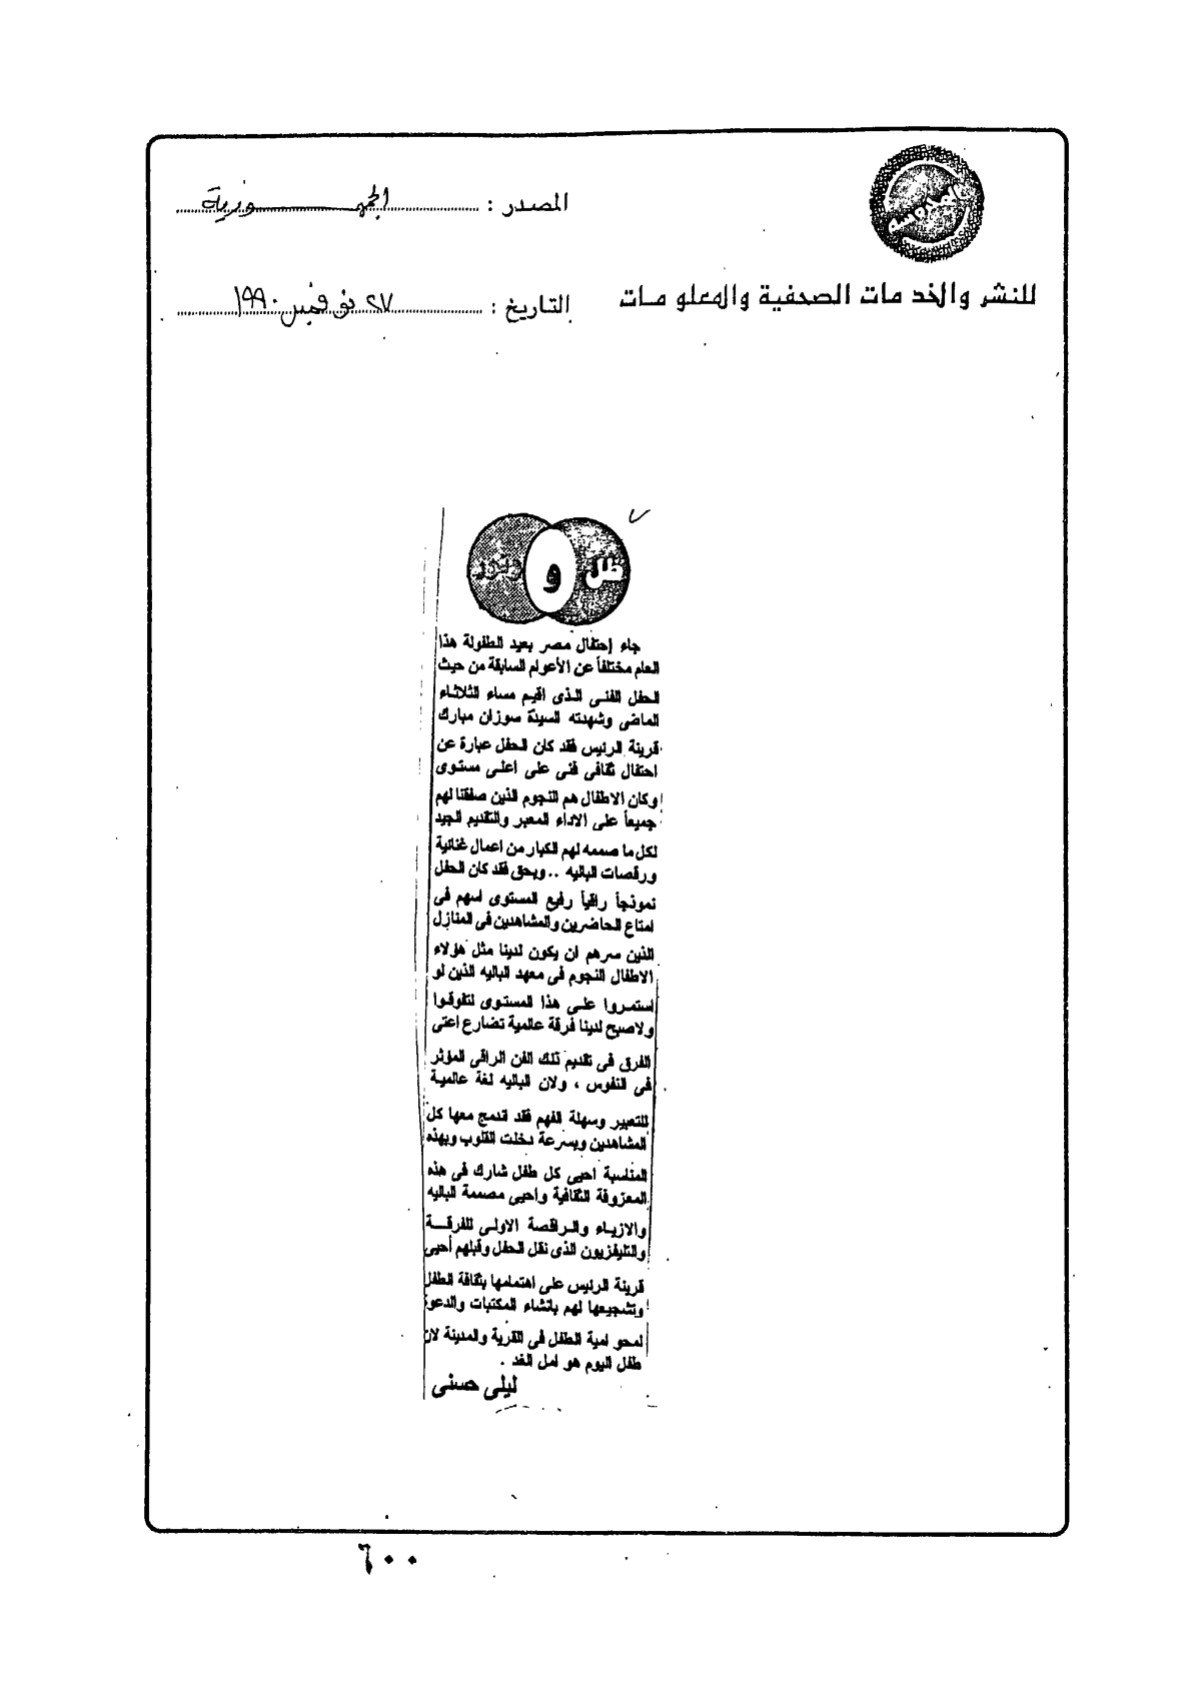 المصدر : الجمهورية
للنشر والخدمات الصحفية والمعلومات
التاريخ : ٢٧ نوفمبر ١٩٩٠
ظل و نور
جاء إحتفال مصر بعيد الطفولة هذا
العام مختلفاً عن الأعوام السابقة من حيث
الحفل الفنى الذى اقيم مساء الثلاثاء
الماضى وشهدته السيدة سوزان مبارك
قرينة الرئيس فقد كان الحفل عبارة عن
احتفال ثقافى فنى على اعلى مستوى
وكان الاطفال هم النجوم الذين صفقنا لهم
جميعاً على الاداء المعبر والتقديم الجيد
لكل ما صممه لهم الكبار من اعمال غنائية
ورقصات الباليه .. وبحق فقد كان الحفل
نموذجاً راقياً رفيع المستوى اسهم فى
امتاع الحاضرين والمشاهدين فى المنازل
الذين سرهم ان يكون لدينا مثل هؤلاء
الاطفال النجوم فى معهد الباليه الذين لو
استمروا على هذا المستوى لتفوقوا
ولاصبح لدينا فرقة عالمية تضارع اعتى
الفرق فى تقديم تلك الفن الراقى المؤثر
فى النفوس ، ولان الباليه لغة عالمية
للتعبير وسهلة الفهم فقد اندمج معها كل
المشاهدين وبسرعة دخلت القلوب وبهذه
المناسبة احيى كل طفل شارك فى هذه
المعزوفة الثقافية واحيى مصممة الباليه
والازياء والراقصة الاولى للفرقة
والتليفزيون الذى نقل الحفل وقبلهم أحيى
قرينة الرئيس على اهتمامها بثقافة الطفل
وتشجيعها لهم بانشاء المكتبات والدعوة
لمحو امية الطفل فى القرية والمدينة لان
طفل اليوم هو امل الغد .
ليلى حسنى
٦٠٠